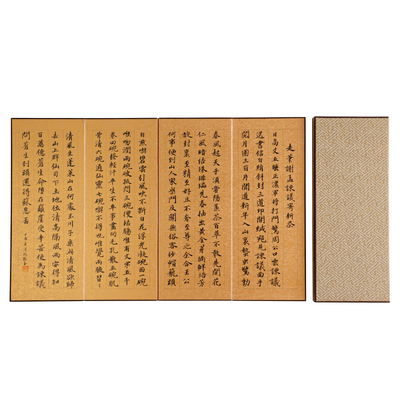 走筆謝孟諫議寄新茶
日高丈五睡正濃軍將打門驚周公口云諫議
送書信白絹斜封三道印開緘宛見諫議面手
閱月團三百片聞道新年入山裏蟄蟲驚動
春風起天子須嘗陽羨茶百草不敢先開花
仁風暗結珠琲瓃先春抽出黃金芽摘鮮焙芳
旋封裹至精至好且不奢至尊之餘合王公
何事便到山人家柴門反關無俗客紗帽籠頭
自煎喫碧雲引風吹不斷白花浮光凝碗面一碗
喉吻潤兩碗破孤悶三碗搜枯腸唯有文字五千
卷四碗發輕汗平生不平事盡向毛孔散五碗肌
骨清六碗通仙靈七碗喫不得也唯覺兩腋習習
清風生蓬萊山在何處玉川子乘此清風欲歸
去山上群仙司下土地位清高隔風雨安得知
百萬億蒼生命墮在巔崖受辛苦便為諫議
問蒼生到頭還得蘇息否